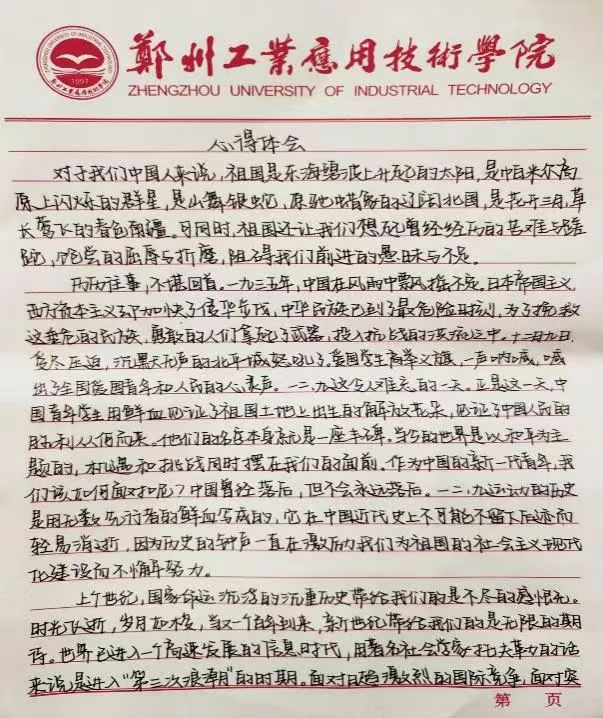 鄭州工業應用技術學院
ZHENGZHOU UNIVERSITY OF INDUSTRIAL TECHNOLOGY
1997
心得体会
对于我们中国人来说，祖国是东海碧波上升起的太阳，是帕米尔高
原上闪烁的群星，是山舞银蛇，原驰蜡象的辽阔北国，是花开三月，草
长莺飞的春色南疆。与同时，祖国还让我们想起曾经经历的苦难与蹉
跎，饱尝的屈辱与折磨，阻碍我们前进的愚昧与不足。
历历往事，不堪回首。一九三五年，中国在风雨中飘风摇不定。日本帝国主义
西方资本主义却加快了侵华步伐，中华民族已到了最危险时刻，为了挽救
这垂危的民族，勇敢的人们拿起了武器，投入抗战的洪流之中。十二月九日，
受尽压迫，沉默无声的北平城怒吼了。爱国学生高举义旗，一声呐喊，喊
出了全国爱国青年和人民的心声。一二·九这令人难忘的一天。正是这一天，中
国青年学生用鲜血见证了祖国土地上出生的解放花朵，见证了中国人民的
胜利从何而来。他们的存在本身就是一座丰碑。当今的世界是以和平为主
题的，机遇和挑战同时摆在我们的面前。作为中国的新一代青年，我
们该如何面对和呢？中国曾经落后，但不会永远落后。一二·九运动的历史
是用无数先行者的鲜血写成的，它在中国近代史上不可能不留下痕迹而
轻易消逝，因为历史的钟声一直在激励我们为祖国的社会主义现代
化建设而不懈努力。
上个世纪，国家命运沉浮的沉重历史带给我们的是不尽的感慨。
时光飞逝，岁月如梭，当又一个百年到来，新世纪带给我们的是无限的期
待。世界已进入一个高速发展的信息时代，用著名社会学家托夫勒的话
来说是进入“第三次浪潮”的时期。面对日趋激烈的国际竞争，面对突
第 页